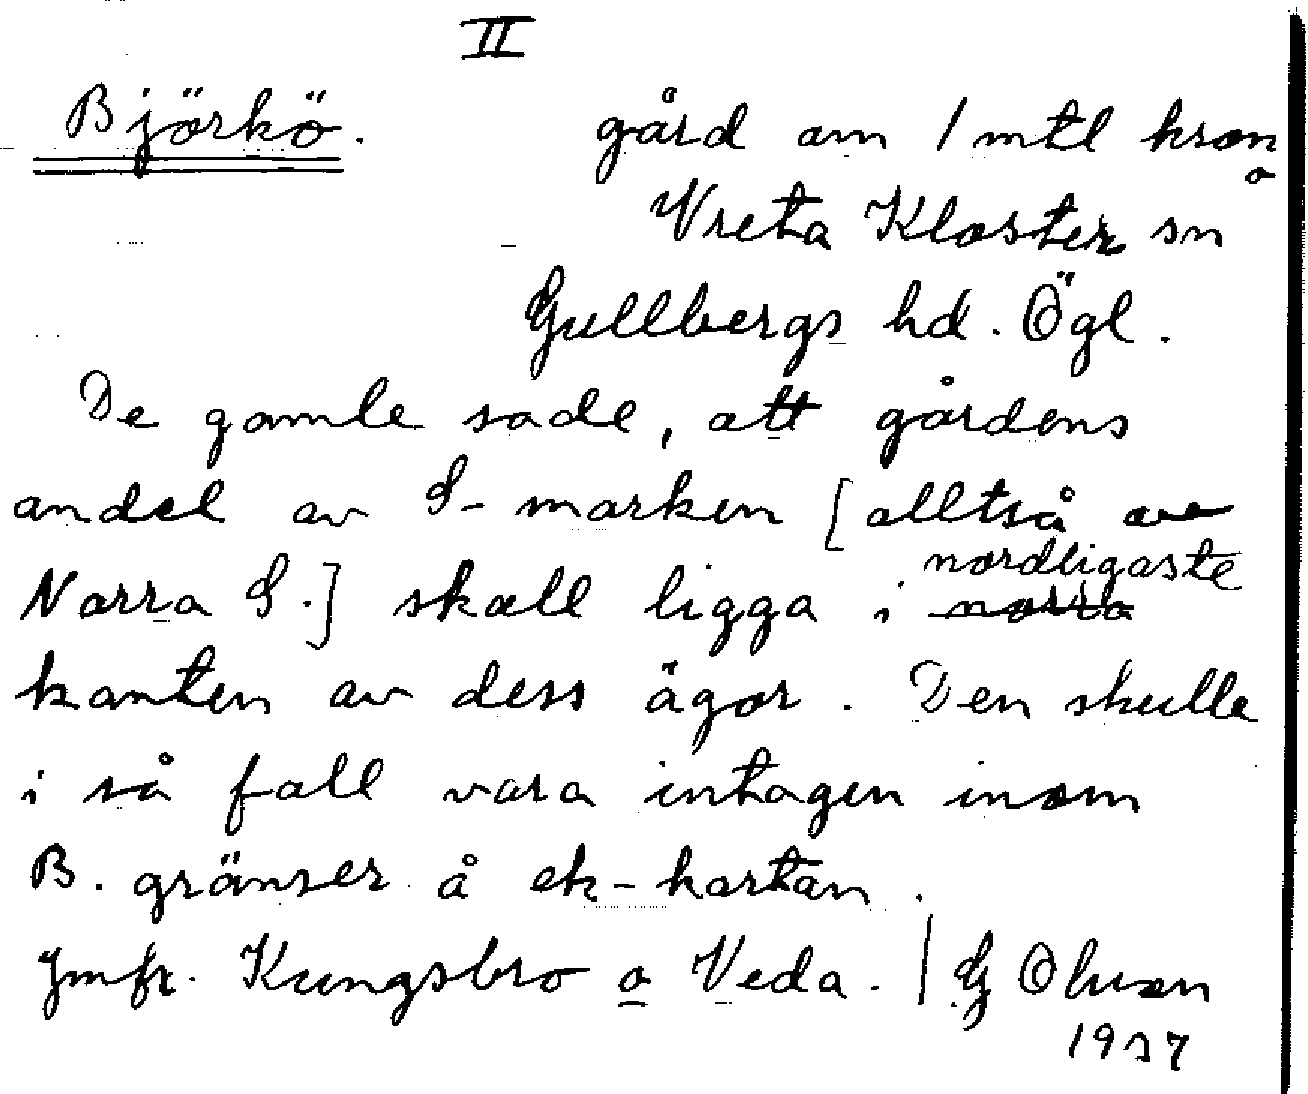 II
Björkö. gård om 1 mtl kron
o
Vreta Kloster sn
Gullbergs hd. Ögl.
De gamle sade, att gårdens
andel av S-marken [alltså av
nordligaste
Norra S.] skall ligga i norra
kanten av dess ägor. Den skulle
i så fall vara intagen inom
B. gränser å ek-kartan.
Jmfr. Kungsbro o Veda. | G Olson